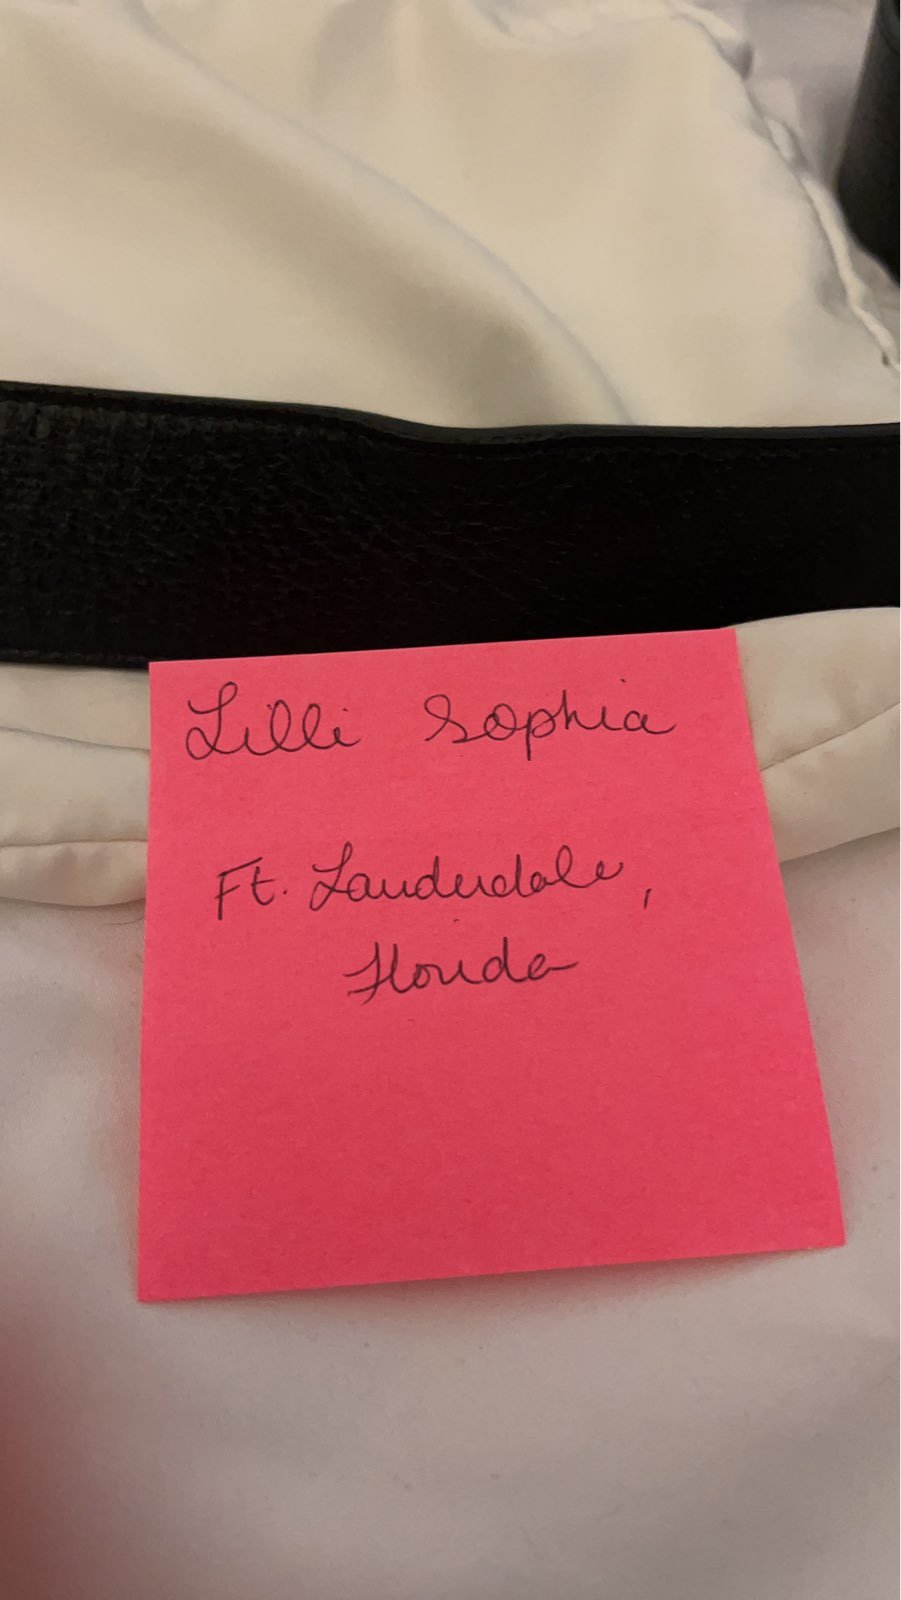 Lilli Sophia
Ft. Lauderdale,
Florida